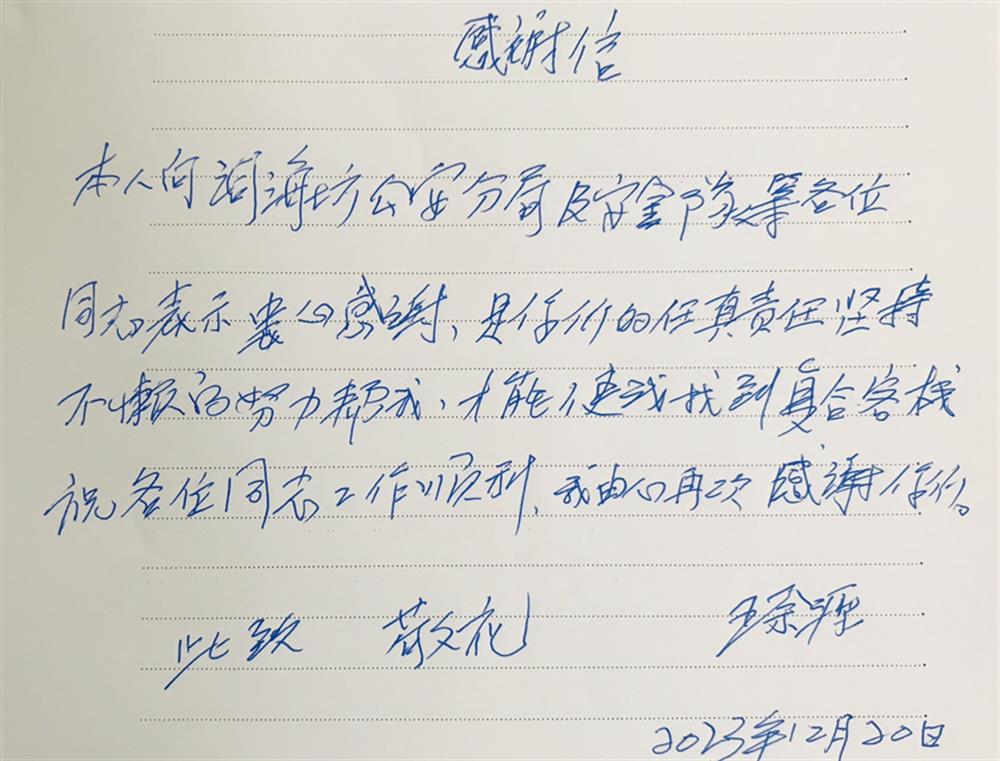 感谢信
本人向海坊公安分局及安全队等各位
同志表示衷心感谢、是你们的任真责任坚持
不懈的努力帮我、才能使我找到复合客栈
祝各位同志工作顺利、我由心再次感谢你们。
此致 敬礼
2023年12月20日